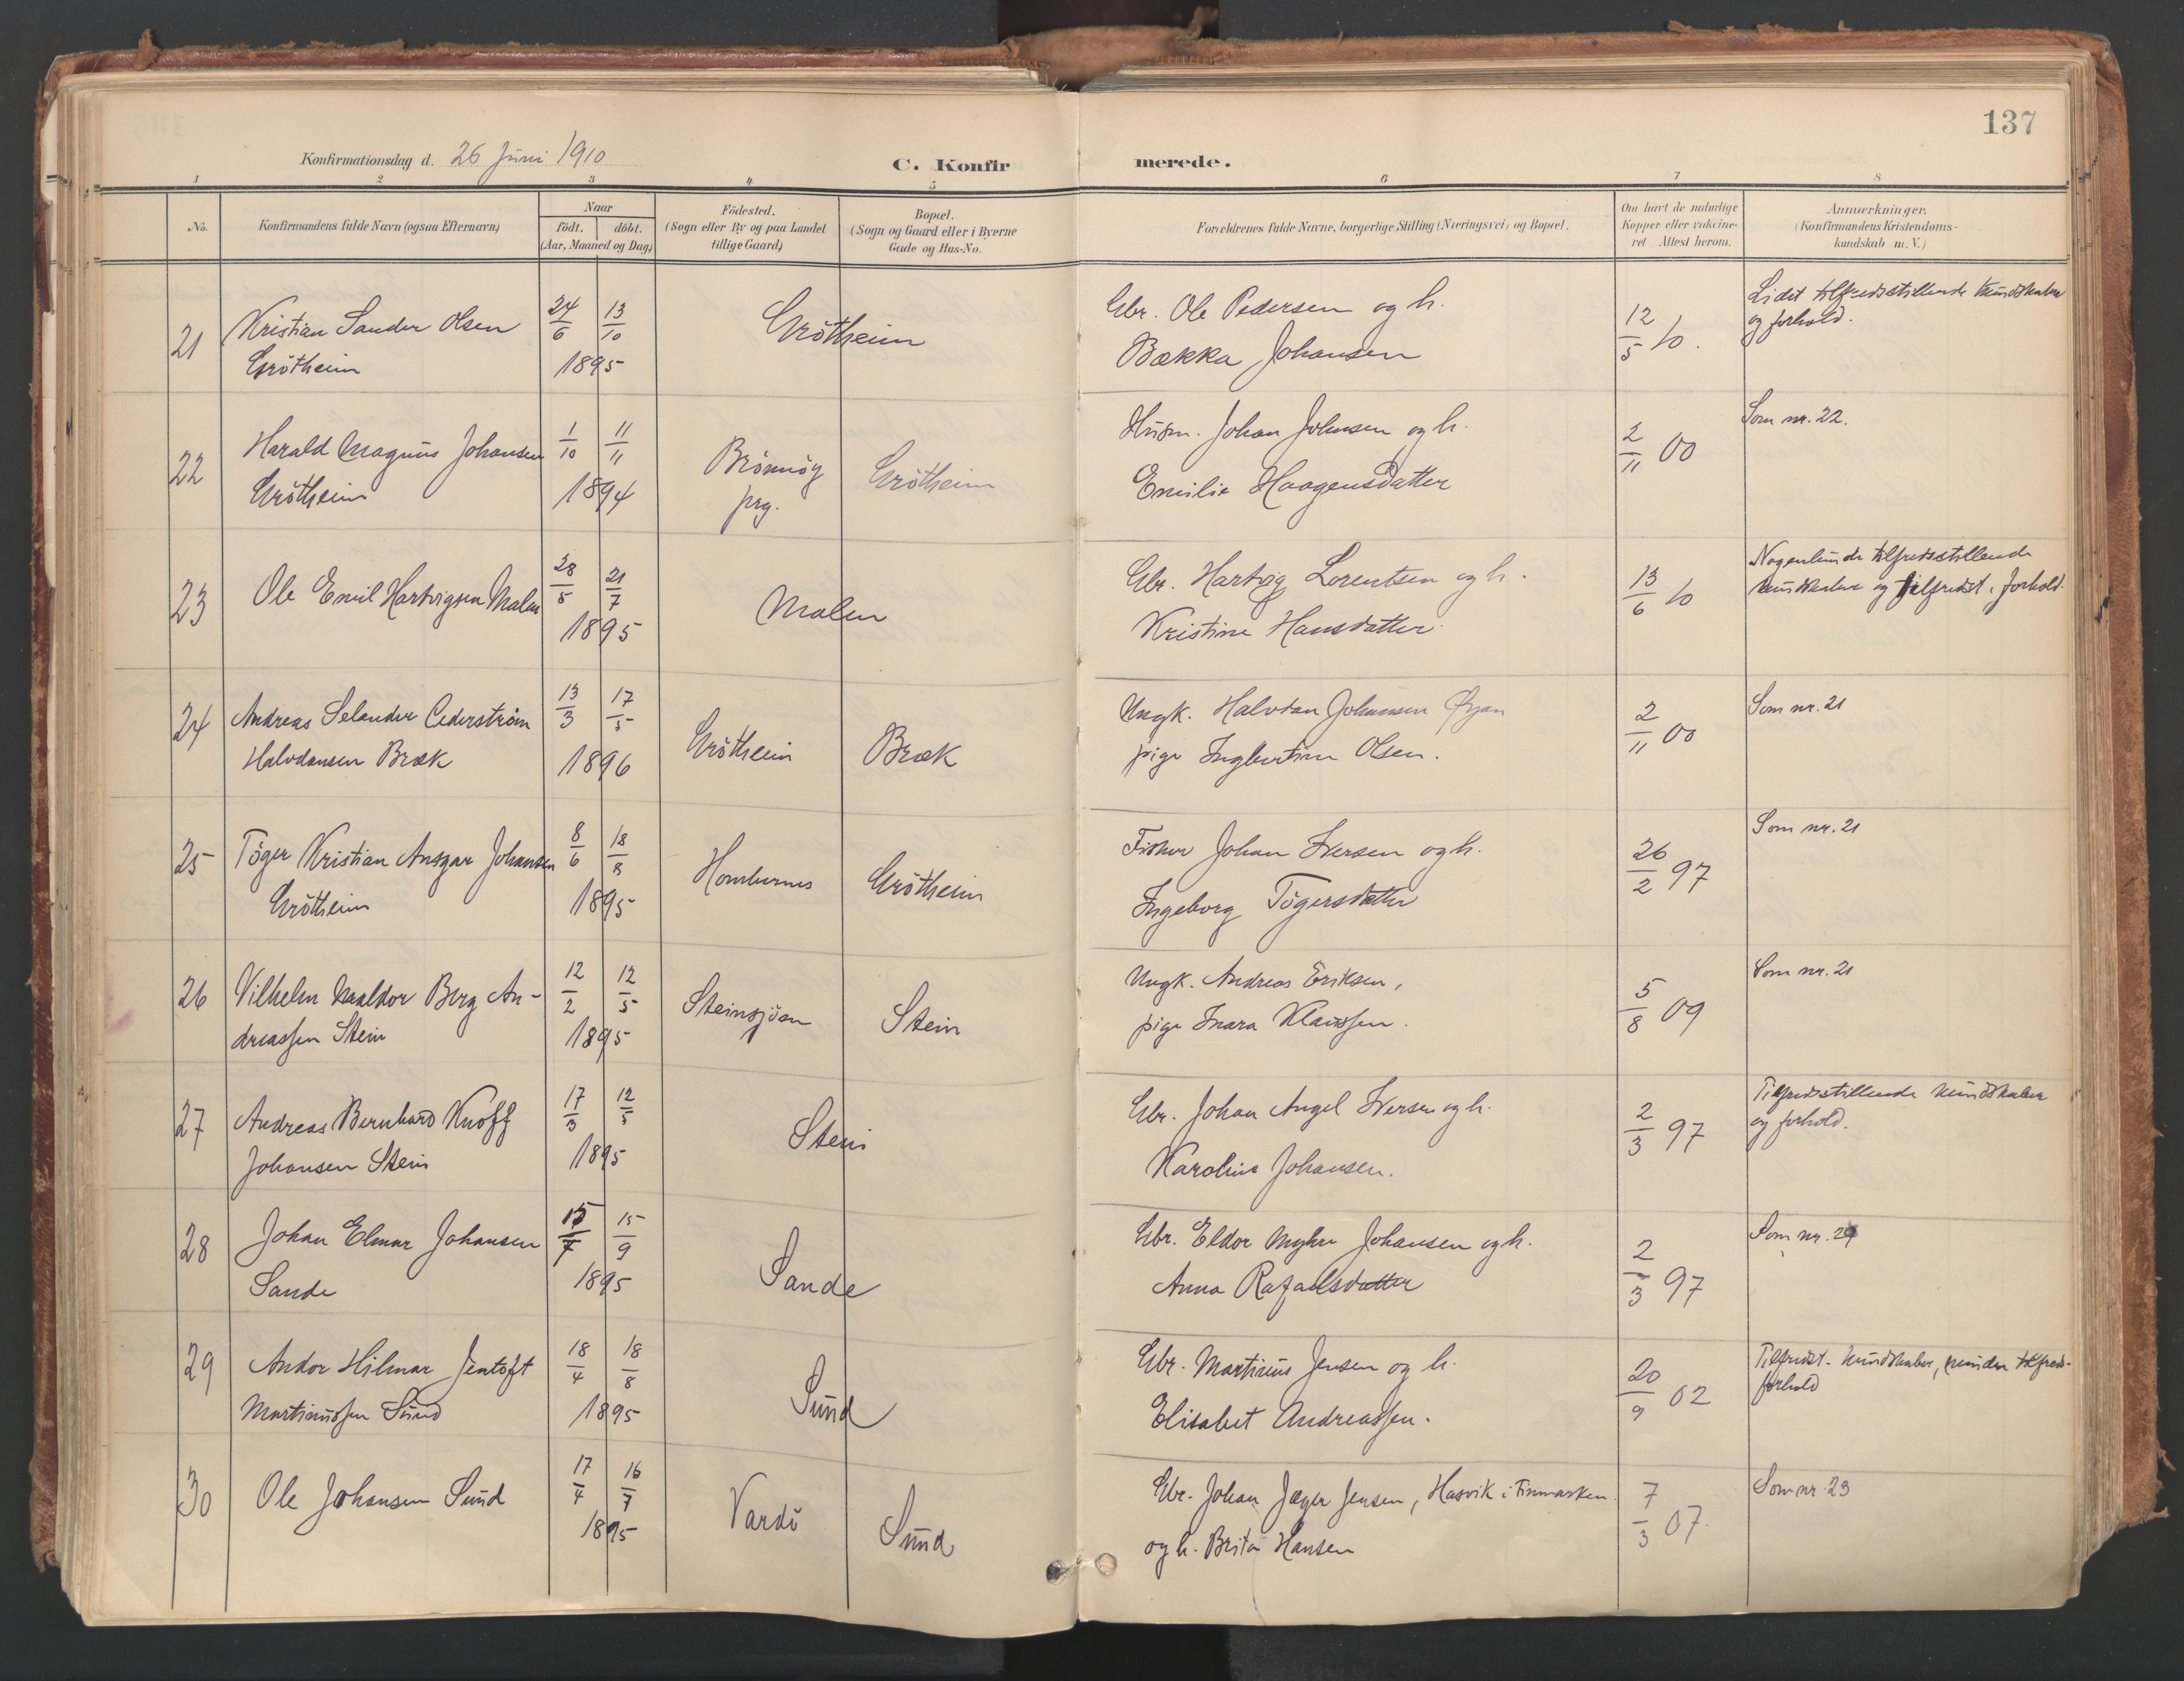 137
Konfirmationsdag d. 26 Juni 1910
C. Konfirmerede.
1 2 3 4 5 6 7 8
No.
Konfirmandens fulde Navn (ogsaa Efternavn)
Naar
födt. döbt.
(Aar, Maaned og Dag)
Födested.
(Sogn eller By og paa Landet
tillige Gaard)
Bopæl.
(Sogn og Gaard eller i Byerne
Gade og Hus-No.
Forældrenes fulde Navne, borgerlige Stilling (Næringsvei) og Bopæl.
Om havt de naturlige
Kopper eller vakcine-
ret Attest herom.
Anmærkninger.
(Konfirmandens Kristendoms-
kundskab m. V.)
21 Kristian Sander Olsen 24/6 13/10 Grötheim Gbr. Ole Pedersen og h. 12/5 10. Lidet tilfredsstillende kundskaber
Grötheim 1895 Bækka Johansen og forhold.
22 Harald Magnus Johansen 1/10 11/11 Brönnöy Grötheim Husm. Johan Johnsen og h. 2/11 00 Som nr. 22.
Grötheim 1894 prg. Emilie Haagensdatter
23 Ole Emil Hartvigsen Malm 28/5 21/7 Malen Gbr. Hartvig Lorentsen og h. 13/6 10 Nogenlunde tilfredsstillende
1895 Kristine Hansdatter kundskaber og tilfredst. forhold.
24 Andreas Selander Cederström 13/3 17/5 Grötheim Bræk Ungk. Halvdan Johansen Øyan 2/11 00 Som nr. 21
Halvdansen Bræk 1896 pige Ingbertine Olsen.
25 Töger Kristian Ansgar Johansen 8/6 18/8 Hombernes Grötheim Fisker Johan Iversen og h. 26/2 97 Som nr. 21
Grötheim 1895 Ingeborg Tögersdatter
26 Vilhelm Waldor Berg An- 12/2 12/5 Steinsjöen Stein Ungk. Andreas Eriksen, 5/8 09 Som nr. 21
dreassen Stein 1895 pige Inara Klaussen.
27 Andreas Bernhard Knoff 17/3 12/5 Stein Gbr. Johan Angel Iversen og h. 2/3 97 Tilfredsstillende kundskaber
Johansen Stein 1895 Karoline Johansen. og forhold.
28 Johan Elmar Johansen 15/7 15/9 Sande Gbr. Eldor Myhre Johansen og h. 2/3 97 Som nr.
Sande 1895 Anna Rafaelsdatter
29 Andor Hilmar Jentoft 18/4 18/8 Sund Gbr. Martinus Jensen og h. 20/9 02 Tilfredst. kundskaber, mindre tilfreds-
Martinussen Sund 1895 Elisabet Andreassen. forhold
30 Ole Johansen Sund 17/4 16/7 Vardö Sund Gbr. Johan Jæger Jensen, Hasvik i Finmarken. 7/3 07. Som nr. 23
1895 og h. Brita Hansen